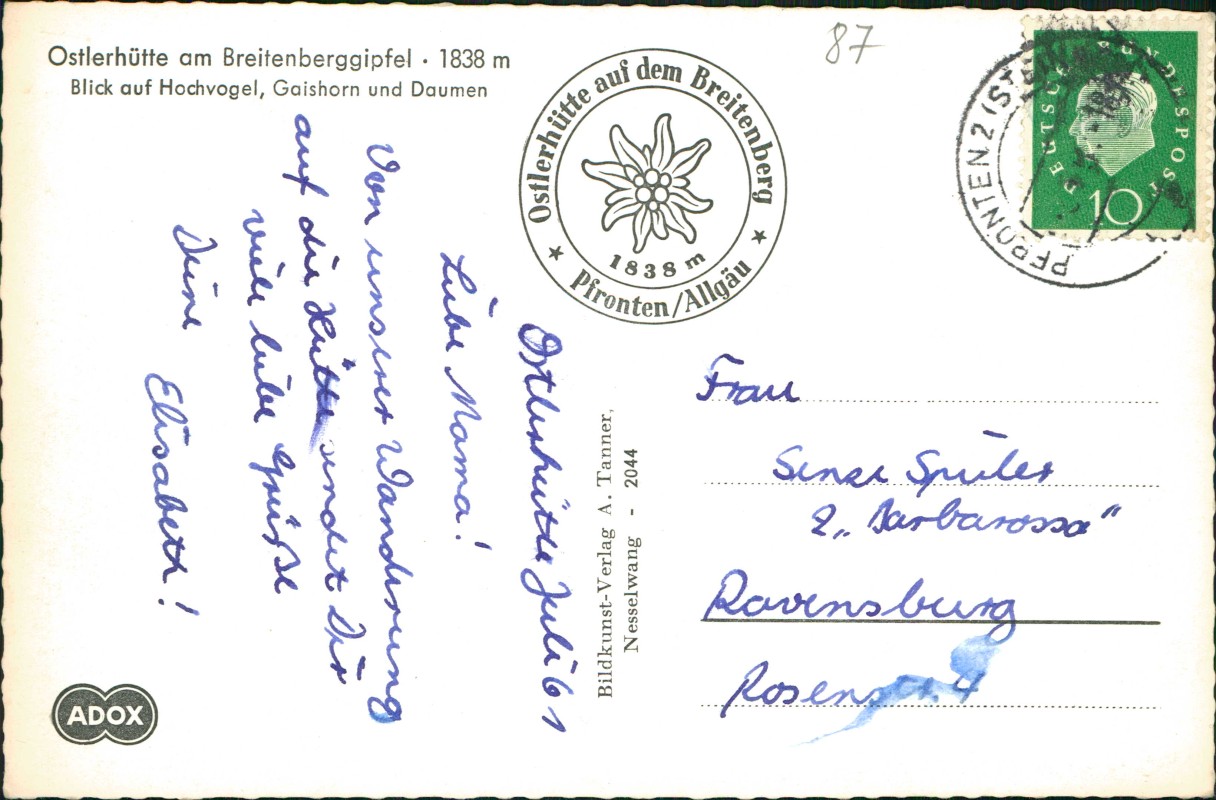 Ostlerhütte am Breitenberggipfel · 1838 m
Blick auf Hochvogel, Gaishorn und Daumen
87
Ostlerhütte auf dem Breitenberg
1838 m
★ Pfronten/Allgäu ★
PFRONTEN 2 (STEINACH)
DEUTSCHE BUNDESPOST
10
Ostlerhütte Juli 61
Liebe Mama!
Von unserer Wanderung
auf die Hütte sendet Dir
viele liebe Grüße
Deine
Elisabeth!
Bildkunst-Verlag A. Tanner,
Nesselwang - 2044
Frau
Senze Spieler
z „Barbarossa"
Ravensburg
Rosenstr. 4
ADOX